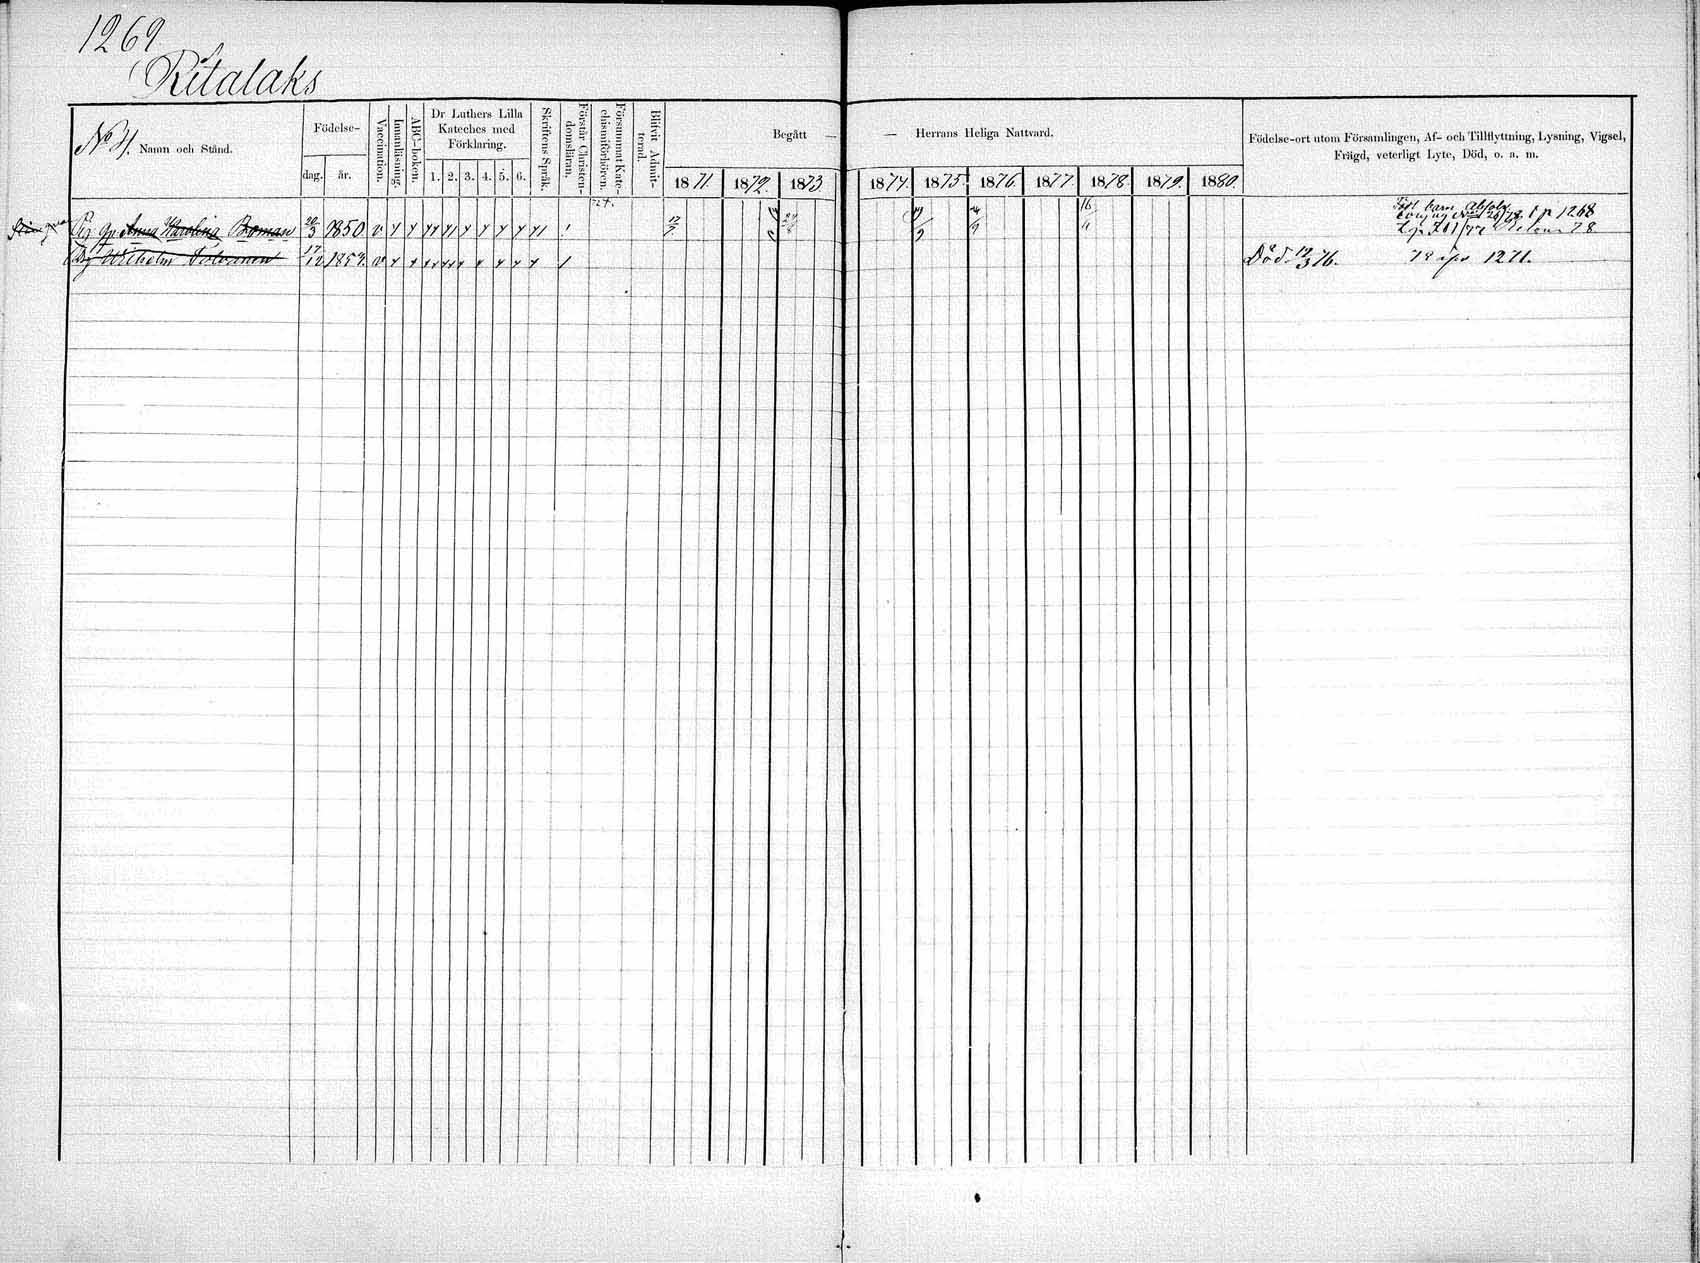 1269
Ritalaks
No 4. Namn och Stånd.
Födelse-
dag. år.
Vaccination.
Innanläsning.
ABC-boken.
Dr Luthers Lilla
Kateches med
Förklaring.
1. 2. 3. 4. 5. 6.
Skriftens Språk.
Förstår Christen-
domsläran.
Försummat Kate-
chismiförhören.
Blifvit Admit-
terad.
Begått —
1871. 1872. 1873.
— Herrans Heliga Nattvard.
1874. 1875. 1876. 1877. 1878. 1879. 1880.
Födelse-ort utom Församlingen, Af- och Tillflyttning, Lysning, Vigsel,
Frägd, veterligt Lyte, Död, o. a. m.
Pig. Anna Karolina Boman 20/3 1850 v
barn Absolv
1268
78
Wilhelm 17/12 1859. v
Död 12/3 76. 1271.